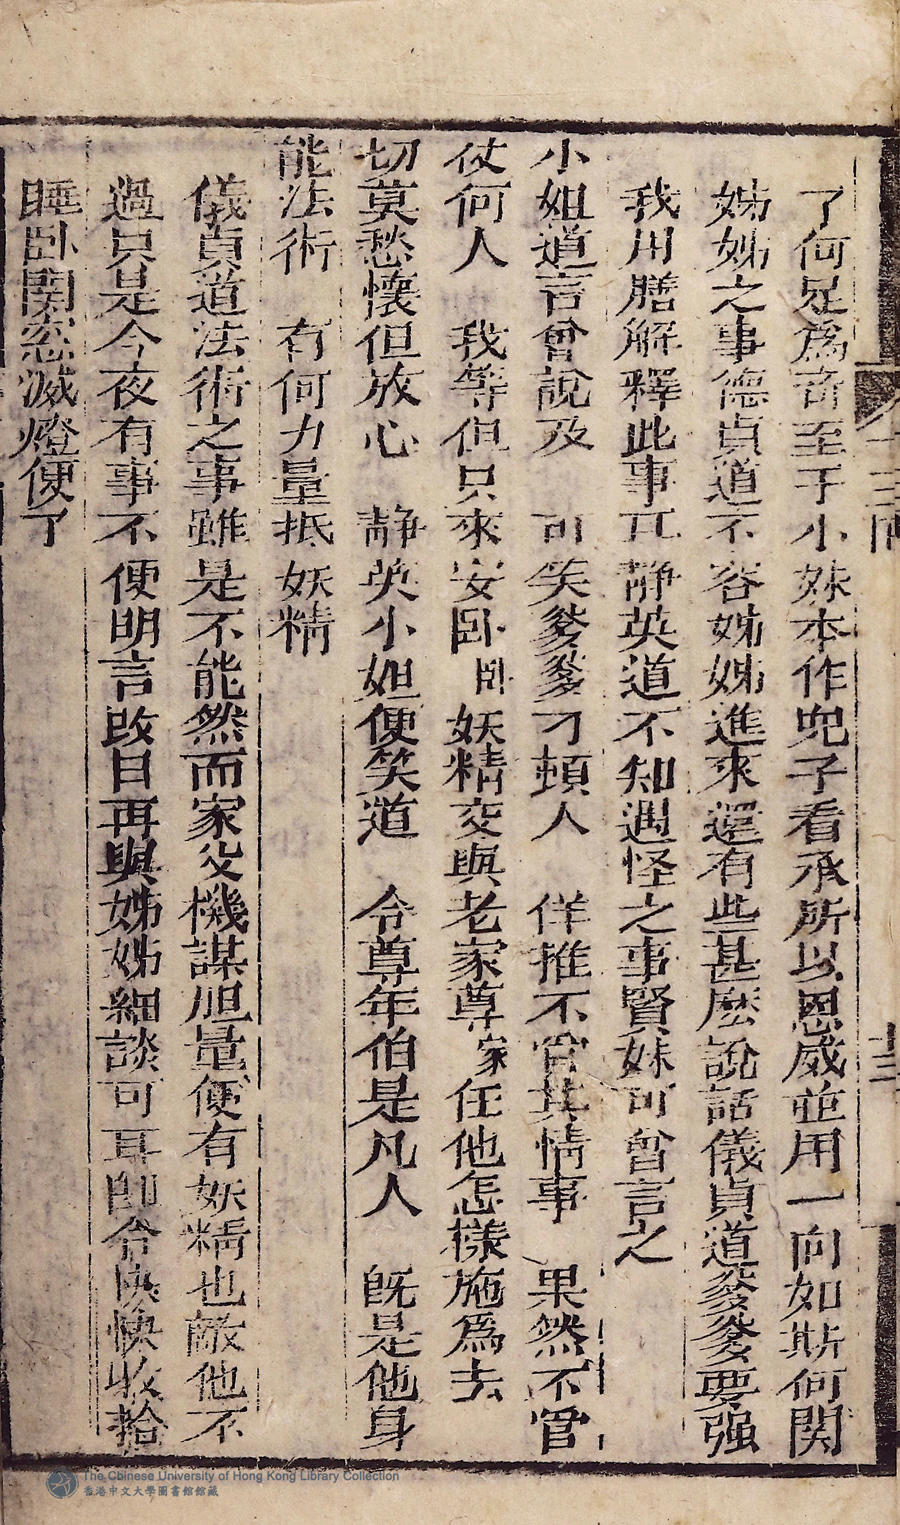 了何足爲奇至于小妹本作兒子看承所以恩威並用一向如斯何関
姊姊之事德貞道不容姊姊進來還有些甚麼說話儀貞道爹爹要强
我用膳解釋此事兀静英道不知遇怪之事賢妹可曾言之
小姐道言曾說及　可笑爹爹刁頓人　佯推不管其情事　果然不管
仗何人　我等但只來安卧卧　妖精交與老家尊家任他怎様施爲去
切莫愁懷但放心　静英小姐便笑道　令尊年伯是凡人　旣是他身
能法術　有何力量抵妖精
儀貞道法術之事雖是不能然而家父機謀胆量便有妖精也敵他不
過只是今夜有事不便明言改日再與姊姊細談可耳卽令快快收拾
睡卧関窓滅燈便了
十三回
十三
The Chinese University of Hong Kong Library Collection
香港中文大學圖書館館藏